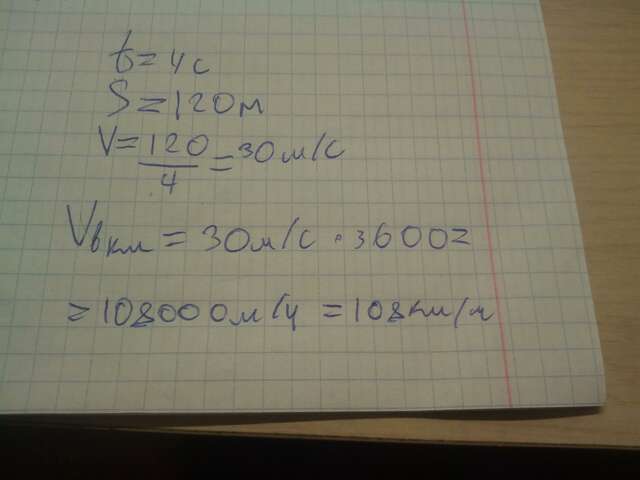 t = 4с
S = 120м
V = 120/4 = 30м/с
Vв км = 30м/с · 3600 =
= 108000м/ч = 108км/ч